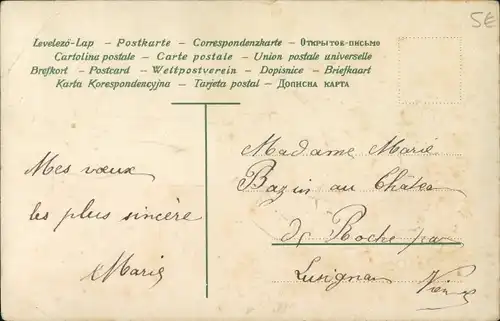 5E
Levelező-Lap – Postkarte – Correspondenzkarte – Открытое-письмо
Cartolina postale – Carte postale – Union postale universelle
Brefkort – Postcard – Weltpostverein – Dopisnice – Briefkaart
Karta Korespondencyjna – Tarjeta postal – Дописна карта
Mes vœux
les plus sincère
Marie
Madame Marie
Bazin au Châter
de Roche par
Lusignan Vienne